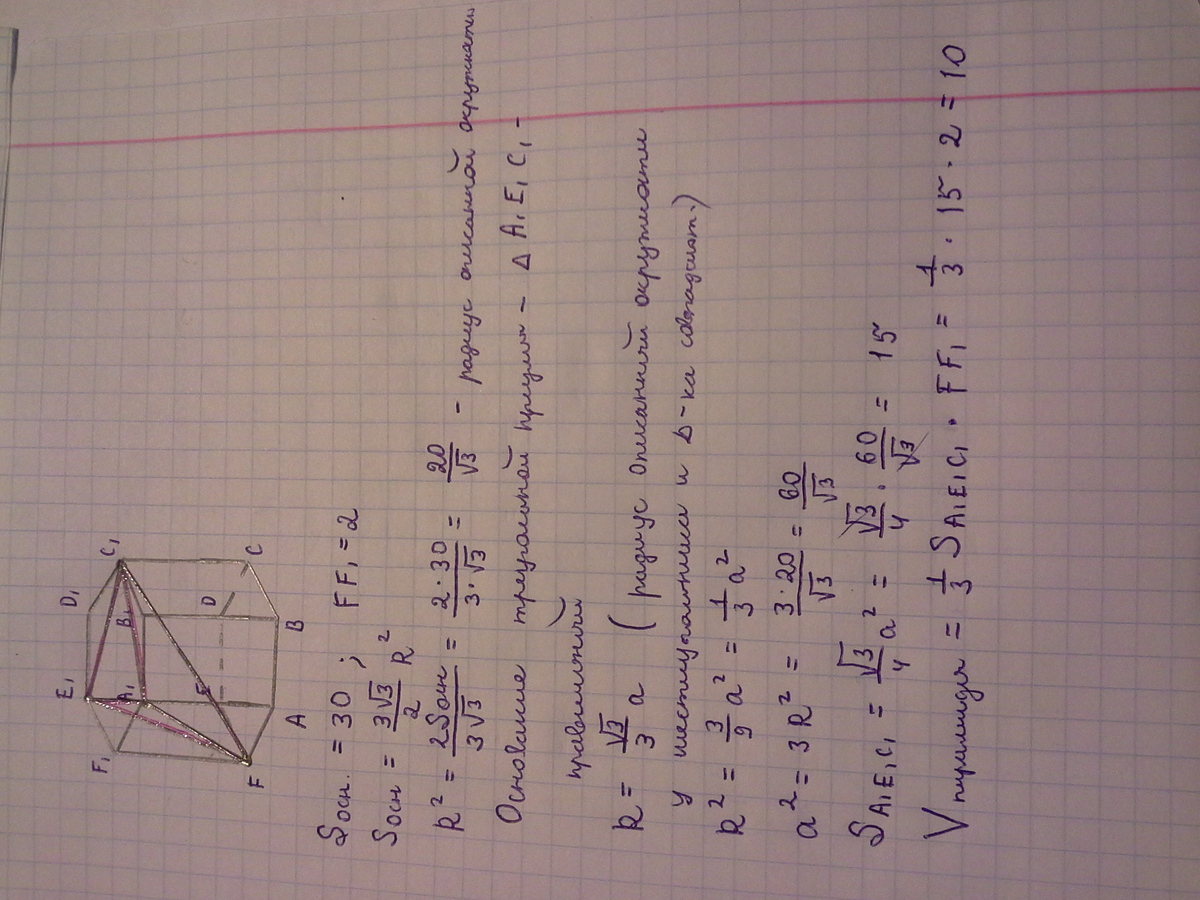 E₁ D₁
F₁ A₁ B₁ C₁
E D
F A B C
Sосн. = 30 ; FF₁ = 2
Sосн = 3√3/2 R²
R² = 2Sосн/3√3 = 2·30/3·√3 = 20/√3 - радиус описанной окружности
Основание треугольной призмы - Δ A₁E₁C₁ -
правильный
R = √3/3 a (радиус описанной окружности
у шестиугольника и Δ-ка совпадают.)
R² = 3/9 a² = 1/3 a²
a² = 3R² = 3·20/√3 = 60/√3
S A₁E₁C₁ = √3/4 a² = √3/4 · 60/√3 = 15
V пирамиды = 1/3 S A₁E₁C₁ · FF₁ = 1/3 · 15 · 2 = 10